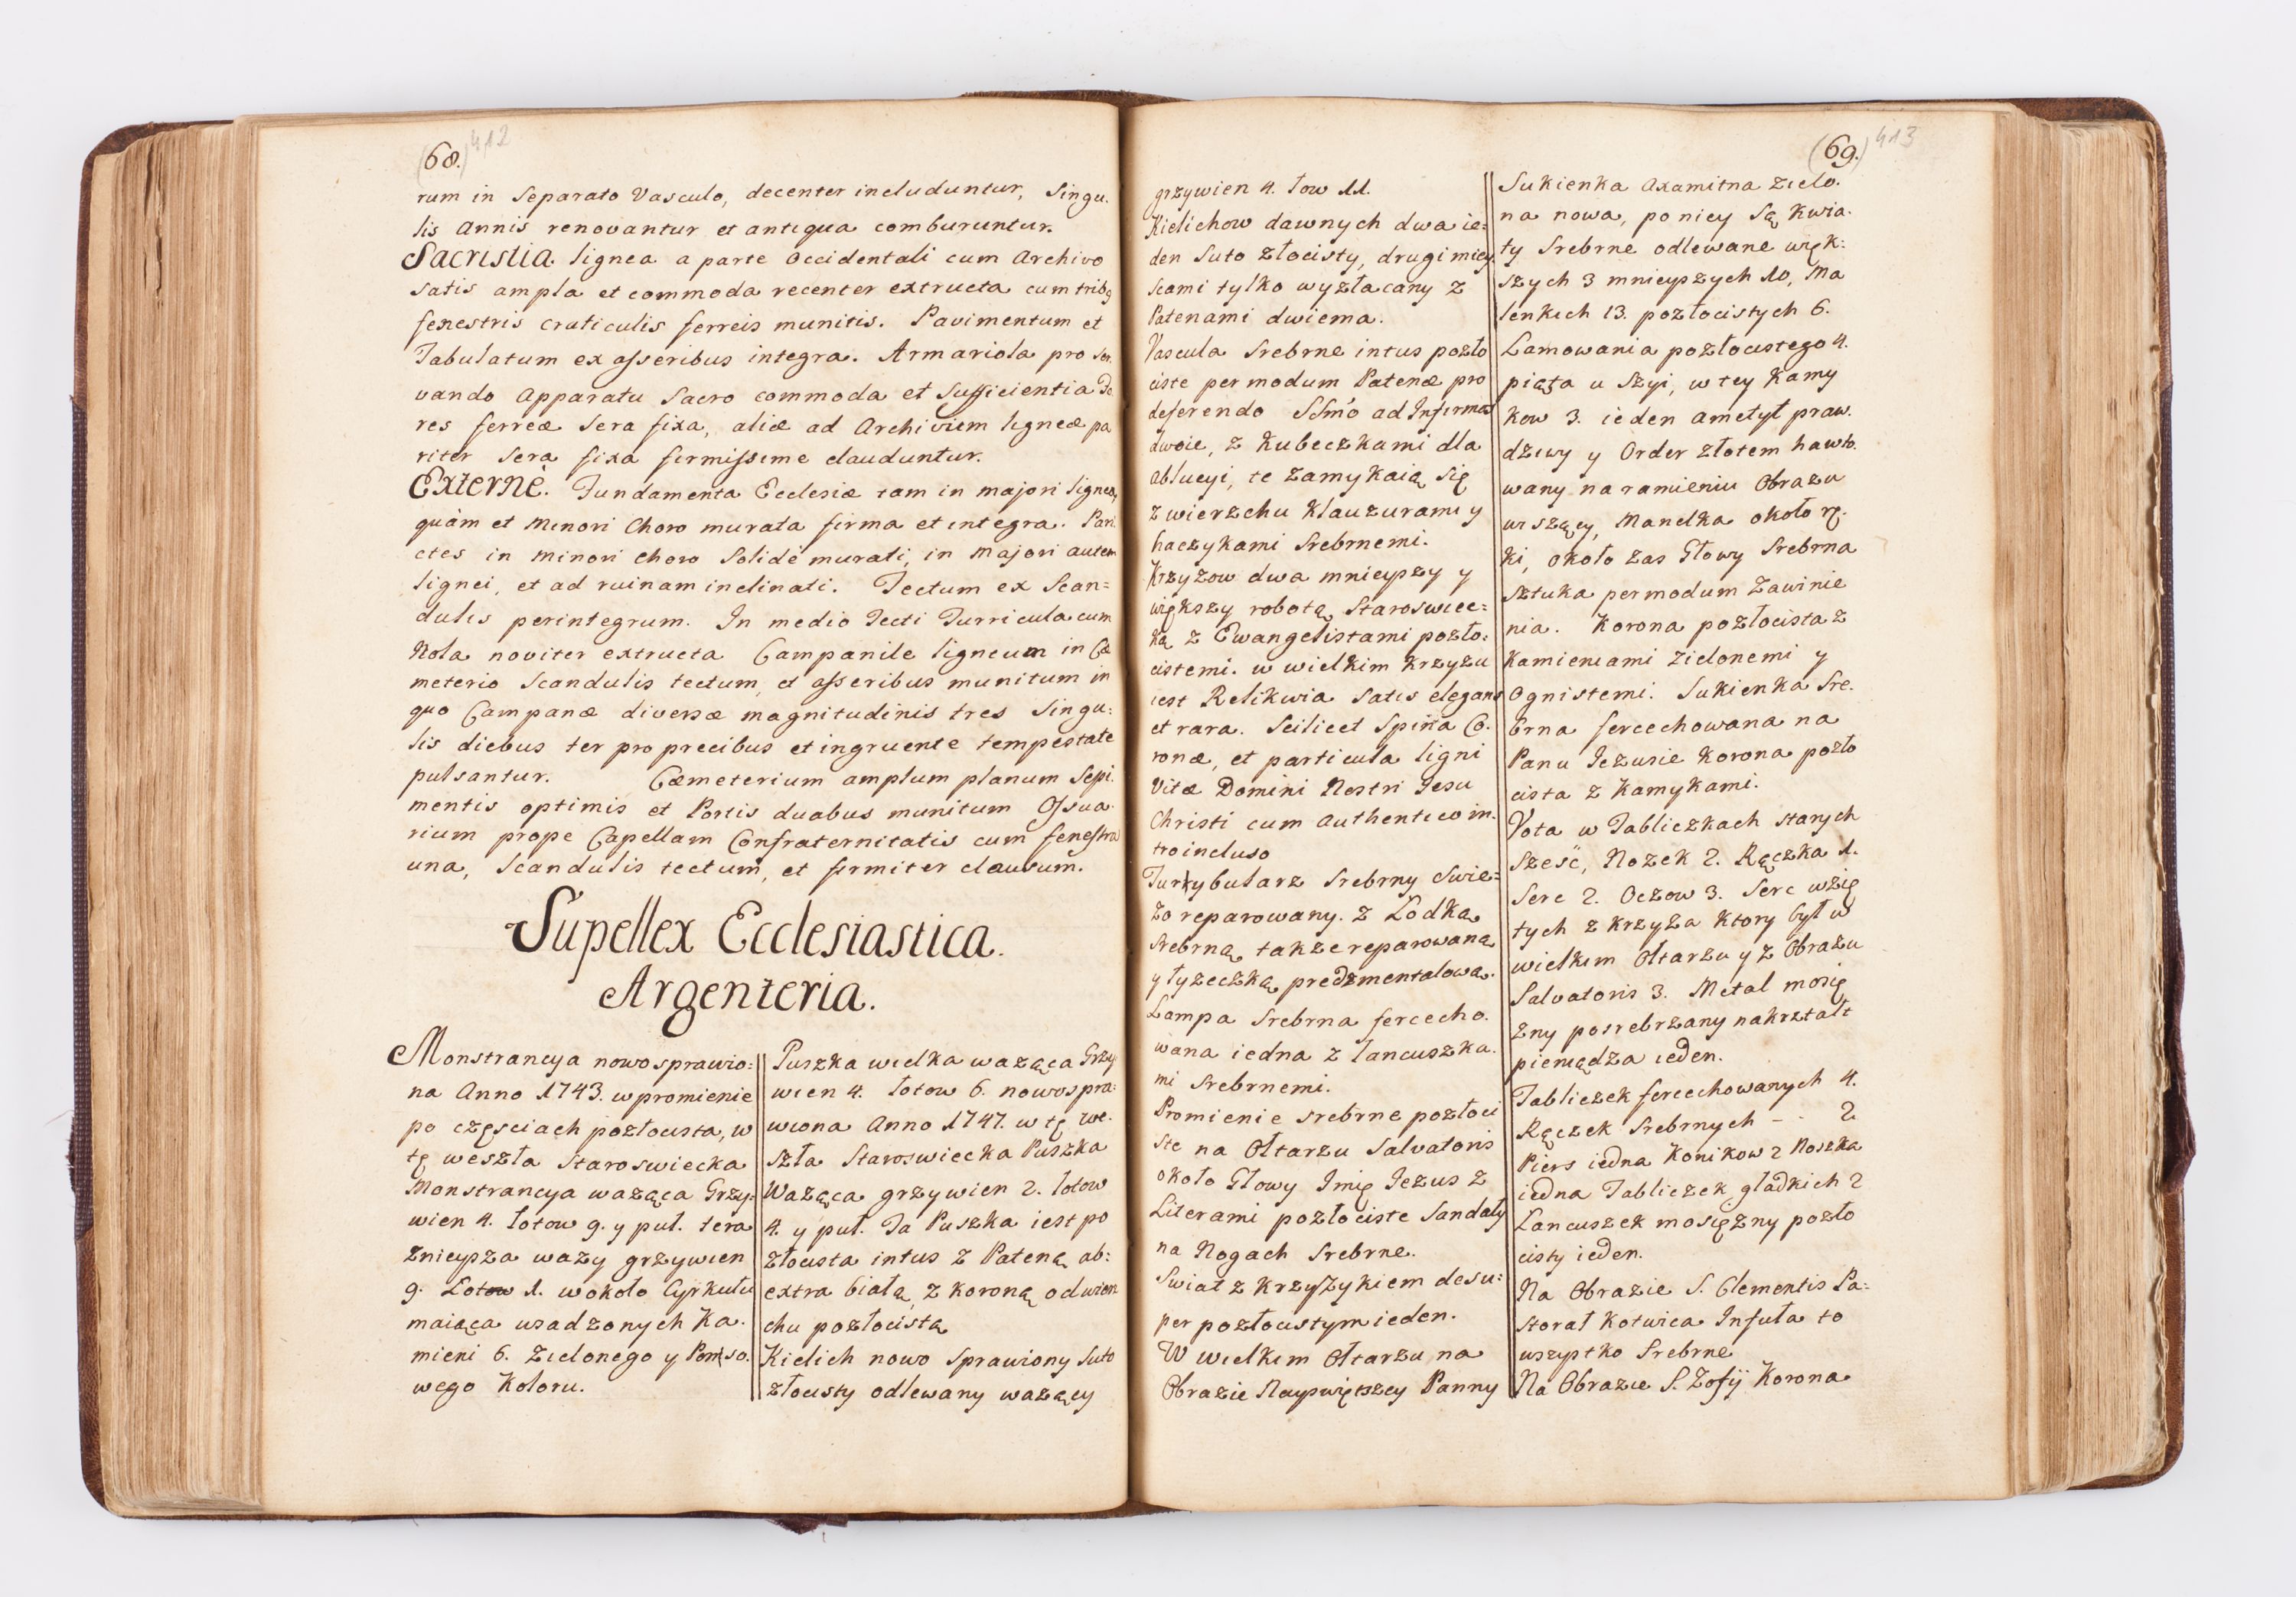 (68.) 412
rum in Separato Vasculo, decenter includuntur, Singu-
lis Annis renovantur et antiqua comburuntur.
Sacristia lignea a parte Occidentali cum Archivo
satis ampla et commoda recenter extructa cum tribq
fenestris craticulis ferreis munitis. Pavimentum et
Tabulatum ex asseribus integra. Armariola pro ser
vando Apparatu Sacro commoda et Sufficientia Fo
res ferreæ Sera fixa, aliæ ad Archivum ligneæ pa
riter Serâ fixa firmissime clauduntur.
Externè. Fundamenta Ecclesiæ tam in majori lignea,
quàm et Minori Choro murata firma et integra. Pari
etes in minori Choro Solidè murati, in majori autem
lignei, et ad ruinam inclinati. Tectum ex Scan=
dulis perintegrum. In medio Tecti Turricula cum
Nola noviter extructa Campanile ligneum in Cæ
meterio Scandulis tectum, et asseribus munitum in
quo Campanæ diversæ magnitudinis tres Singu:
lis diebus ter pro precibus et ingruente tempestate
pulsantur. Cæmeterium amplum planum Sepi-
mentis optimis et Portis duabus munitum Ossua-
rium prope Capellam Confraternitatis cum fenestra
una, Scandulis tectum, et firmiter clausum.
Supellex Ecclesiastica.
Argenteria.
Monstrancya nowo sprawio:
na Anno 1743. w promienie
po częsciach pozłocista, w
tę weszła Staroswiecka
Monstrancya ważąca Grzy:
wien 4. łotow 9. y puł. tera
znieysza wazy grzywien
9. Lotow 1. wokoło Cyrkułu
maiąca wsadzonych Ka-
mieni 6. Zielonego y Ponso.
wego Koloru.
Puszka wielka waząca Grzy
wien 4. łotow 6. nowo spra:
wiona Anno 1747. w tę we-
szła Staroswiecka Puszka
Ważąca grzywien 2. łotow
4. y puł. Ta Puszka iest po
złocista intus z Pateną ab:
extra białą, z koroną odwierz
chu pozłocistą
Kielich nowo Sprawiony Suto
złocisty odlewany ważący
(69.) 413
grzywien 4. łow 11.
Kielichow dawnych dwa ie=
den Suto złocisty, drugi miey.
scami tylko wyzłacany z
Patenami dwiema.
Vascula Srebrne intus pozło
ciste per modum Patenæ pro
deferendo SSmo ad Infirmos
dwoie, z Kubeczkami dla
ablucyi, te zamykaią się
z wierzchu Klauzurami y
haczykami Srebrnemi.
Krzyzow dwa mnieyszy y
większy robotą Staroswiec=
ką z Ewangelistami pozło:
cistemi. w wielkim Krzyzu
iest Relikwia Satis elegans
et rara. Scilicet Spina Co-
ronæ, et particula ligni
Vitæ Domini Nostri Jesu
Christi cum Authentico in-
tro incluso
Turybularz Srebrny swie=
żo reparowany. z Łodką
Srebrną także reparowaną
y łyzeczką predzmentalową.
Lampa Srebrna fercecho.
wana iedna z łancuszka-
mi Srebrnemi.
Promienie srebrne pozłoci
ste na Ołtarzu Salvatoris
około Głowy Imię Jezus z
Literami pozłociste Sandały
na Nogach Srebrne.
Swiat z krzyżykiem desu:
per pozłocistym ieden.
W wielkim Ołtarzu na
Obrazie Nayswiętszey Panny
Sukienka Axamitna zielo-
na nowa, po niey Są Kwia-
ty Srebrne odlewane więk:
szych 3 mnieyszych 10, Ma
lenkich 13. pozłocistych 6.
Lamowania pozłocistego 4.
piąta u Szyi, w tey Kamy
kow 3. ieden ametyst praw.
dziwy y Order złotem hawto.
wany na ramieniu Obrazu
wiszący, Manelka około rę-
ki, około zas Głowy Srebrna
sztuka per modum Zawinie
nia. Korona pozłocista z
Kamieniami Zielonemi y
Ognistemi. Sukienka Sre-
brna fercechowana na
Panu Jezusie Korona pozło
cista z Kamykami.
Vota w Tabliczkach starych
Sześć, Nozek 2. Rączka 1.
Serc 2. Oczow 3. Serc wzię
tych z krzyża ktory był w
wielkim Ołtarzu y z Obrazu
Salvatoris 3. Metal mosię
żny posrebrzany nakształt
pieniądza ieden.
Tabliczek fercechowanych 4.
Rączek Srebrnych - - 2
Piers iedna Konikow 2 Noszka
iedna Tabliczek gładkich 2
Lancuszek mosiężny pozło
cisty ieden.
Na Obrazie S. Clementis Pa=
storał Kotwica Infuła to
wszystko Srebrne
Na Obrazie S. Zofij Korona